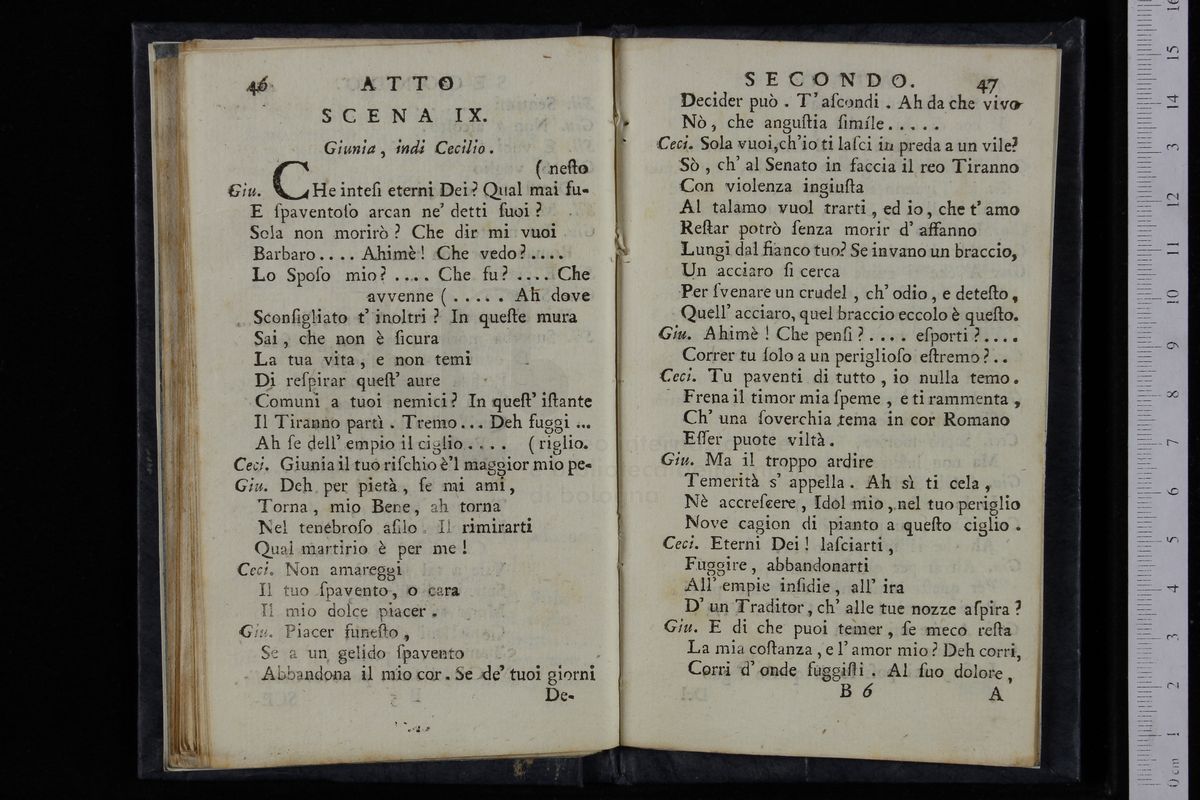 46 ATTO
SCENA IX.
Giunia, indi Cecilio.
( neſto
Giu. CHe inteſi eterni Dei? Qual mai fu-
E ſpaventoſo arcan ne' detti ſuoi?
Sola non morirò? Che dir mi vuoi
Barbaro.... Ahimè! Che vedo?....
Lo Spoſo mio?.... Che fu?.... Che
avvenne (..... Ah dove
Sconſigliato t' inoltri? In queſte mura
Sai, che non è ſicura
La tua vita, e non temi
Di reſpirar queſt' aure
Comuni a tuoi nemici? In queſt' iſtante
Il Tiranno partì. Tremo... Deh fuggi ...
Ah ſe dell' empio il ciglio.... ( riglio.
Ceci. Giunia il tuo riſchio è'l maggior mio pe-
Giu. Deh per pietà, ſe mi ami,
Torna, mio Bene, ah torna
Nel tenebroſo aſilo. Il rimirarti
Qual martirio è per me!
Ceci. Non amareggi
Il tuo ſpavento, o cara
Il mio dolce piacer.
Giu. Piacer funeſto,
Se a un gelido ſpavento
Abbandona il mio cor. Se de' tuoi giorni
De-
SECONDO. 47
Decider può. T' aſcondi. Ah da che vivo
Nò, che anguſtia ſimile.....
Ceci. Sola vuoi,ch'io ti laſci in preda a un vile?
Sò, ch' al Senato in faccia il reo Tiranno
Con violenza ingiuſta
Al talamo vuol trarti, ed io, che t' amo
Reſtar potrò ſenza morir d' affanno
Lungi dal fianco tuo? Se invano un braccio,
Un acciaro ſi cerca
Per ſvenare un crudel, ch' odio, e deteſto,
Quell' acciaro, quel braccio eccolo è queſto.
Giu. Ahimè! Che penſi?.... eſporti?....
Correr tu ſolo a un periglioſo eſtremo?..
Ceci. Tu paventi di tutto, io nulla temo.
Frena il timor mia ſpeme, e ti rammenta,
Ch' una ſoverchia tema in cor Romano
Eſſer puote viltà.
Giu. Ma il troppo ardire
Temerità s' appella. Ah sì ti cela,
Nè accreſcere, Idol mio, nel tuo periglio
Nove cagion di pianto a queſto ciglio.
Ceci. Eterni Dei! laſciarti,
Fuggire, abbandonarti
All' empie inſidie, all' ira
D' un Traditor, ch' alle tue nozze aſpira?
Giu. E di che puoi temer, ſe meco reſta
La mia coſtanza, e l' amor mio? Deh corri,
Corri d' onde fuggiſti. Al ſuo dolore,
B 6 A